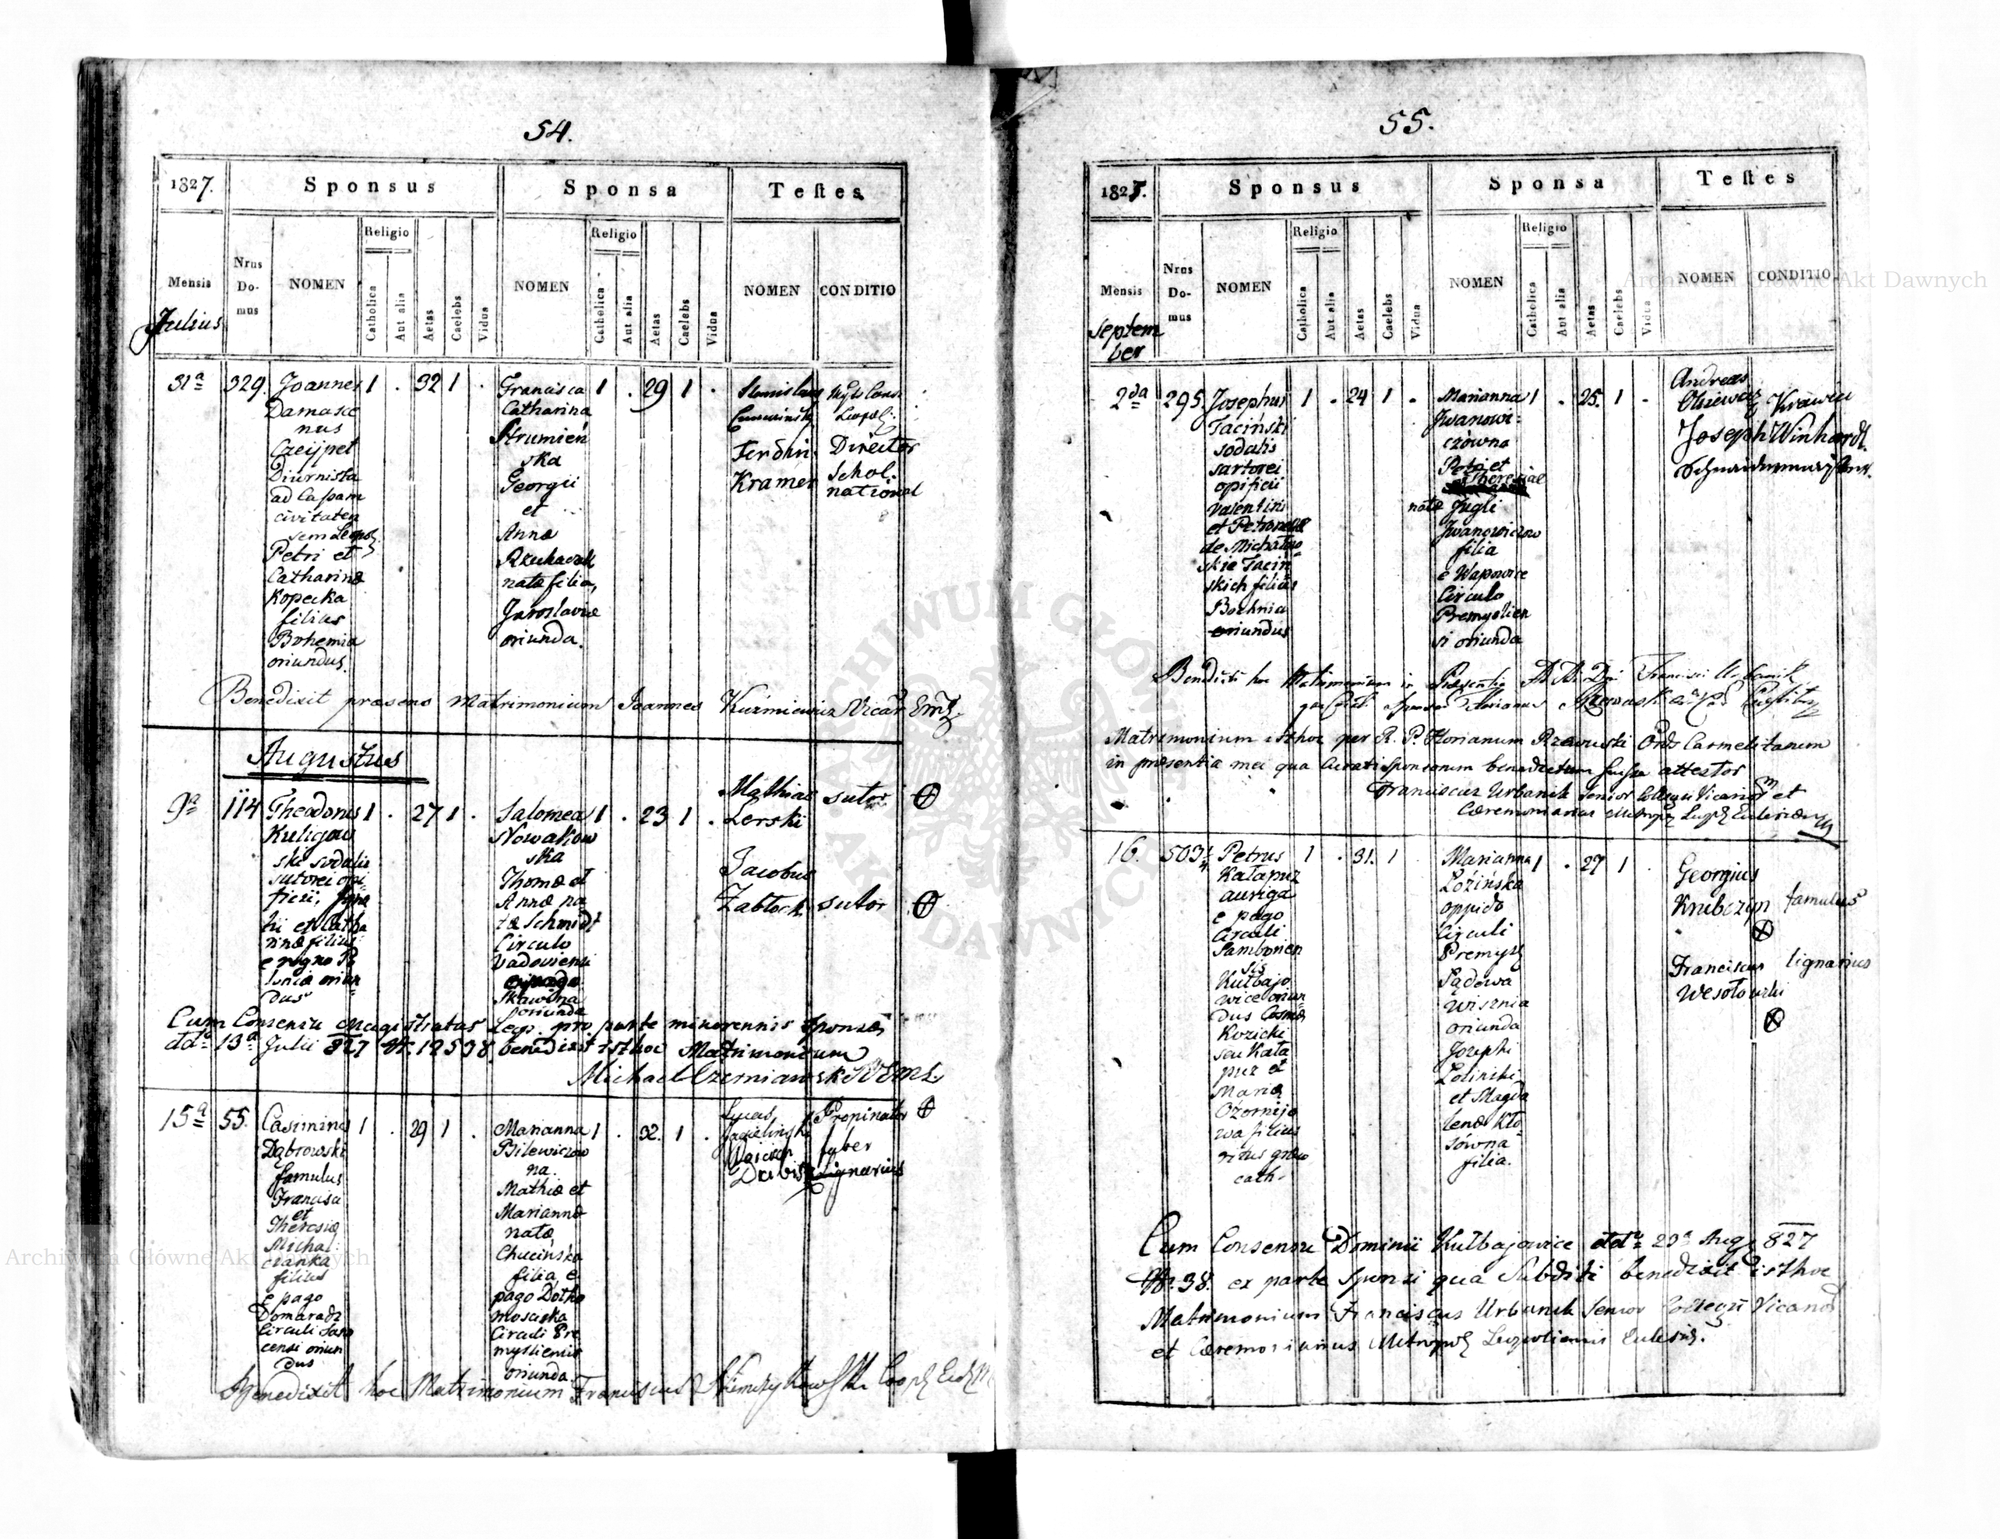 54.
1827.
Sponsus
Sponsa
Testes
Mensis
Julius
Nrus
Do-
mus
NOMEN
Religio
Catholica
Aut alia
Aetas
Caelebs
Vidua
NOMEN
Religio
Catholica
Aut alia
Aetas
Caelebs
Vidua
NOMEN
CONDITIO
31a
329.
Joannes
Damasce
nus
Czeijpet
Diurnista
ad Cassam
civitaten
sem Leop
Petri et
Catharinæ
Kopecka
filius
Bohemia
oriundus.
1 . 32 1 .
Francisca
Catharina
Strumień
ska
Georgii
et
Annæ
natæ filia,
Jaroslaviæ
oriunda.
1 . 29 1 .
Stanislaus
Ferdin:
Kramer
Director
Schol:
national
Benedixit præsens Matrimonium Joannes Kuźmiewicz Vicar
Augustus
9a
114
Theodorus
Kuligow
ski sodalis
sutorei opi
ficii, Igna
tii et Catha
rinæ filius
e regno Po
loniæ oriun
dus
1 . 27 1 .
Salomea
Nowakow
ska
Thomæ et
Annæ na
tæ Schmidt
Circulo
Vadoviensi
Skawina
oriunda
1 . 23 1 .
Mathias sutor
Lerski
Jacobus
sutor
Cum Consensu Magistratus Leop. pro parte minorennis Sponsæ
ddto 13a Julii 827 Nr. 12538. benedixit isthoc Matrimonium
Michael Czerniawski
15a
55.
Casimirus
Dąbrowski
famulus
Francisci
et
Theresiæ
Michal
czanka
filius
e pago
Domaradz
Circuli Sano
censi oriun
dus
1 . 29 1 .
Marianna
Bilewiczow
na
Mathiæ et
Mariannæ
natæ
Chucińska
filia, e
pago Dołho
mościska
Circuli Pre
mysliensis
oriunda
1 . 32. 1 .
Lucas Propinator
faber
lignarius
Benedixit hoc Matrimonium Franciscus
55.
1827.
Sponsus
Sponsa
Testes
Mensis
Septem
ber
Nrus
Do-
mus
NOMEN
Religio
Catholica
Aut alia
Aetas
Caelebs
Vidua
NOMEN
Religio
Catholica
Aut alia
Aetas
Caelebs
Vidua
NOMEN
CONDITIO
2da
295.
Josephus
Taciński
sodalis
sartorei
opificii
Valentini
et Petronellæ
de Michałow
skie Tacin
skich filius
Bochnia
oriundus
1 . 24 1 .
Marianna
Jwanowi:
czówna
Petri et
Theresiæ
natæ Jugli
Jwanowiczow
filia
e Wapowice
Circulo
Premyslien
si oriunda
1 . 25. 1 .
Andreas
Krawiec
Joseph Winhardt
Schneidermeister
Benedixit hoc Matrimonium in Præsentia Francisci Urbanik
Matrimonium isthoc per R. P. Florianum Rzewuski Ords Carmelitanum
in præsentia mei qua Curati sponsorum benedictum fuisse attestor
Franciscus Urbanik Senior Collegii Vicariorum et
Cæremoniarius
16.
503¼
Petrus
Katapuz
auriga
e pago
Circuli
Samborien
sis
Kulbajo
wice oriun
dus Cosmæ
Kozicki
seu Kata
puz et
Mariæ
Ożornijo
wa filius
ritus græco
cath.
1 . 31. 1 .
Marianna
Łozińska
oppido
Circuli
Premysl
Sądowa
Wisznia
oriunda
Josephi
Łoziński
et Magda
lenæ Kło
sówna
filia.
1 . 27 1 .
Georgius
famulus
Franciscus lignarius
Wesołowski
Cum Consensu Dominii Kulbajowice ddto 29a Aug 827
Nr. 38. ex parte Sponsi qua Subditi benedixit isthoc
Matrimonium Franciscus Urbanik Senior Collegii Vicarior
et Cæremoniarius Metropol Leopoliensis Ecclesiæ.
Archiwum Główne Akt Dawnych
Archiwum Główne Akt Dawnych
ARCHIWUM GŁÓWNE AKT DAWNYCH